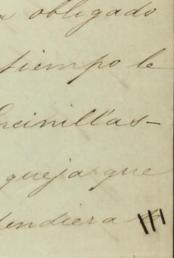 a obligado
tiempo le
Encinillas-
queja que
tendiera a